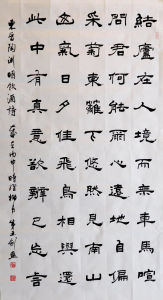 結廬在人境而無車馬喧
問君何能爾心遠地自偏
采菊東籬下悠然見南山
山氣日夕佳飛鳥相與還
此中有真意欲辨已忘言
東晉陶淵明飲酒詩